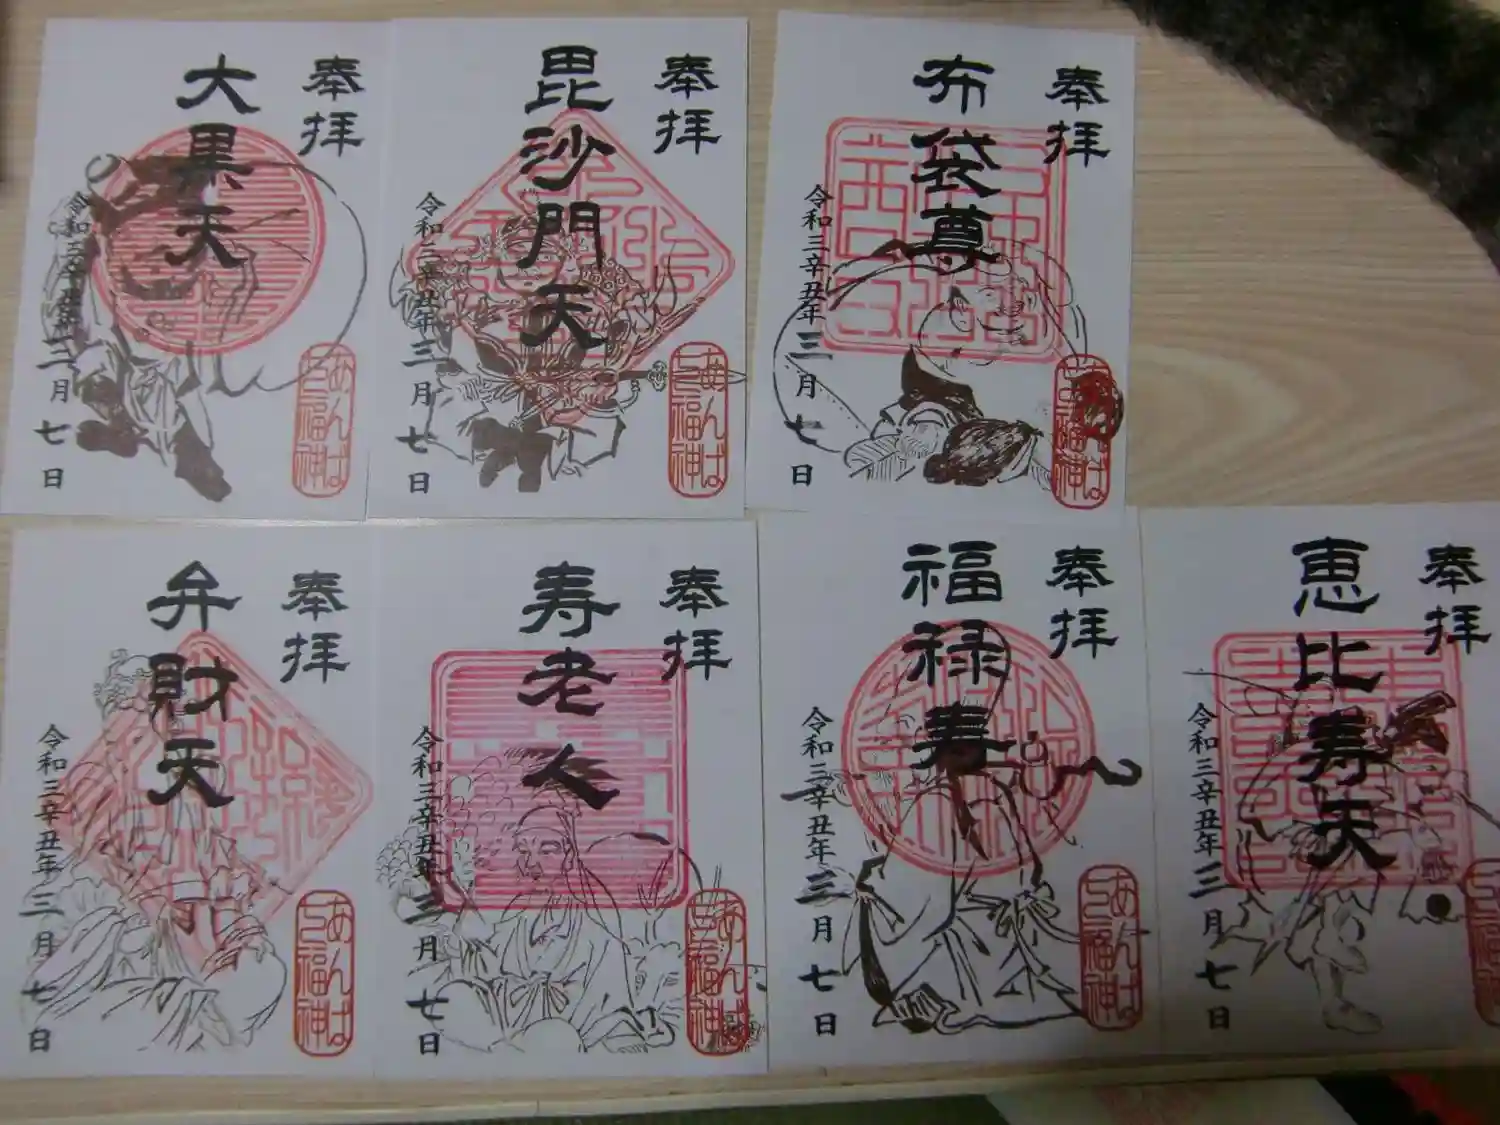 奉拝
大黒天
令和三辛丑年三月七日
あんば七福神
奉拝
毘沙門天
令和三辛丑年三月七日
あんば七福神
奉拝
布袋尊
令和三辛丑年三月七日
あんば七福神
奉拝
弁財天
令和三辛丑年三月七日
あんば七福神
奉拝
寿老人
令和三辛丑年三月七日
あんば七福神
奉拝
福禄寿
令和三辛丑年三月七日
あんば七福神
奉拝
恵比寿天
令和三辛丑年三月七日